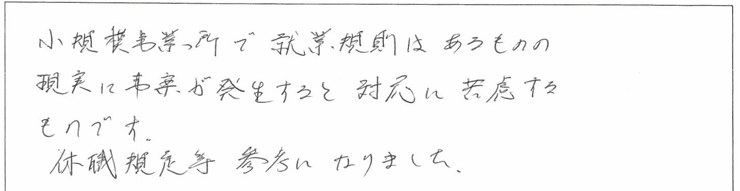 小規模事業所で就業規則はあるものの
現実に事案が発生すると対応に苦慮する
ものです。
休職規定等参考になりました。